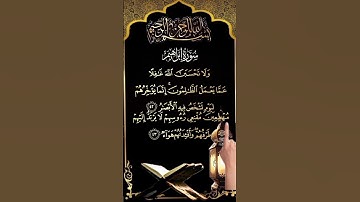 بسم الله الرحمن الرحيم
سورة ابراهيم
وَلَا تَحْسَبَنَّ اللَّهَ غَافِلًا
عَمَّا يَعْمَلُ الظَّالِمُونَ ۚ إِنَّمَا يُؤَخِّرُهُمْ
لِيَوْمٍ تَشْخَصُ فِيهِ الْأَبْصَارُ ﴿٤٢﴾
مُهْطِعِينَ مُقْنِعِي رُءُوسِهِمْ لَا يَرْتَدُّ إِلَيْهِمْ
طَرْفُهُمْ ۖ وَأَفْئِدَتُهُمْ هَوَاءٌ ﴿٤٣﴾